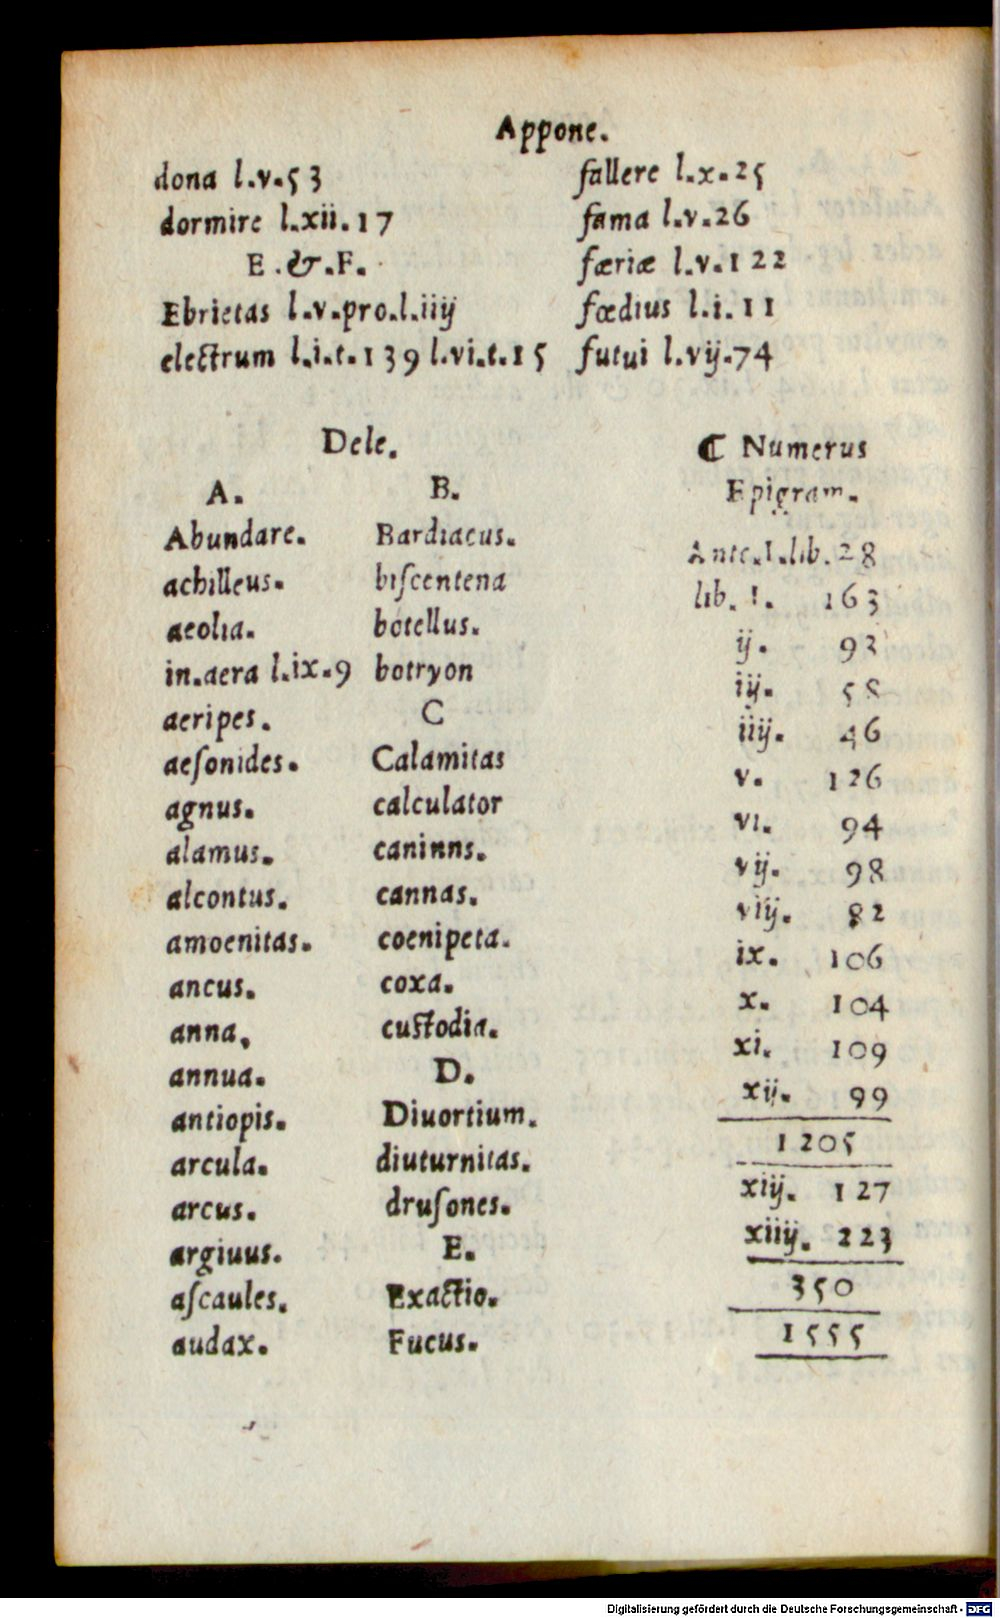 Appone.
dona l.v.53
dormire l.xii.17
E.&.F.
Ebrietas l.v.pro.l.iiij
electrum l.i.t.139 l.vi.t.15
fallere l.x.25
fama l.v.26
færiæ l.v.122
fœdius l.i.11
futui l.vij.74
Dele.
A.
Abundare.
achilleus.
aeolia.
in.aera l.ix.9
aeripes.
aeſonides.
agnus.
alamus.
alcontus.
amoenitas.
ancus.
anna,
annua.
antiopis.
arcula.
arcus.
argiuus.
aſcaules.
audax.
B.
Bardiacus.
biſcentena
botellus.
botryon
C
Calamitas
calculator
caninns.
cannas.
coenipeta.
coxa.
custodia.
D.
Diuortium.
diuturnitas.
druſones.
E.
Exactio.
Fucus.
⁋ Numerus
Epigram.
Ante.I.lib.28
lib. I. 163
ij. 93
iij. 58
iiij. 46
v. 126
vi. 94
vij. 98
viij. 82
ix. 106
x. 104
xi. 109
xij. 99
1205
xiij. 127
xiiij. 223
350
1555
Digitalisierung gefördert durch die Deutsche Forschungsgemeinschaft - DFG